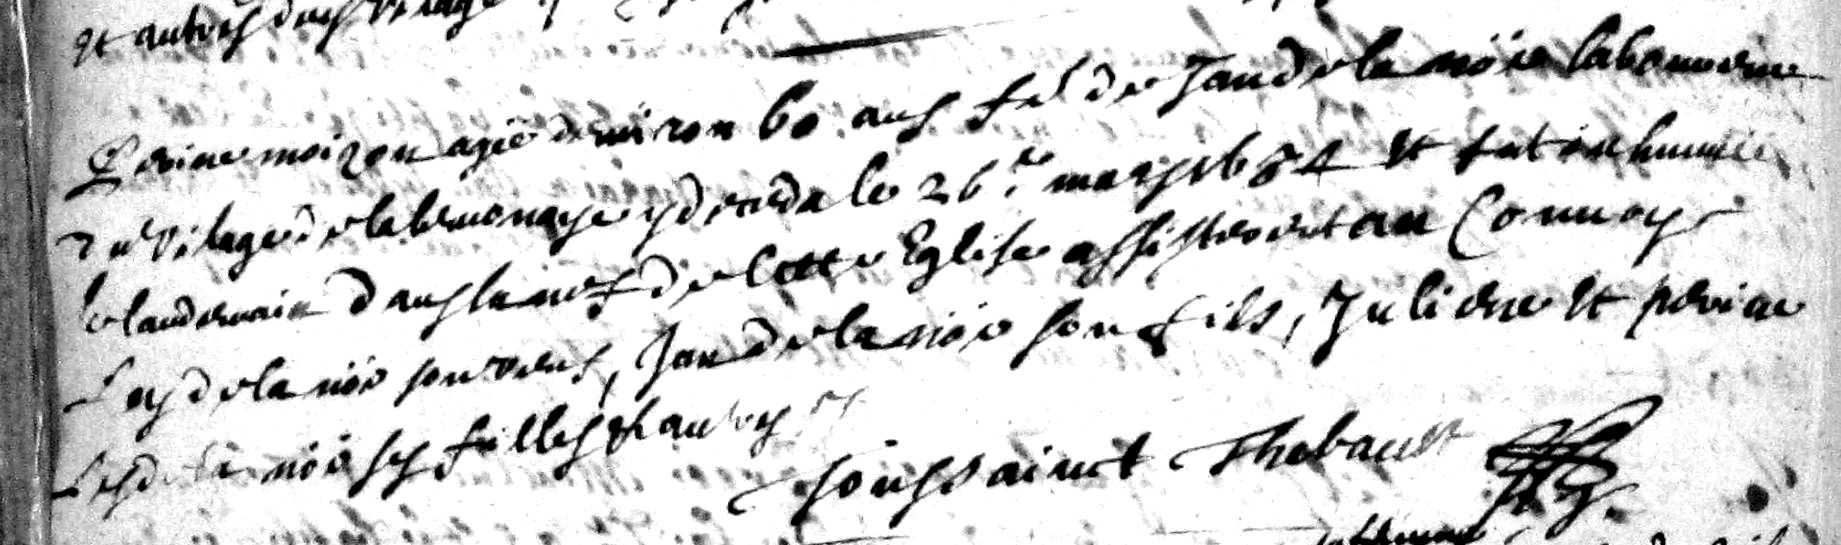 et autres dudit vilage
Perine moizon agee denviron 60 ans fe de Jan de la noie laboureur
du vilage de la brenonaye y deceda le 26e mars 1654 et fut inhumee
le landemain dans la nef de cette Eglise assisterent au Convoys
Luy de la noie son veuf, Jan de la noie son fils, Juliene et perine
Les de la noie ses filles et autres
Toussainct Thebault